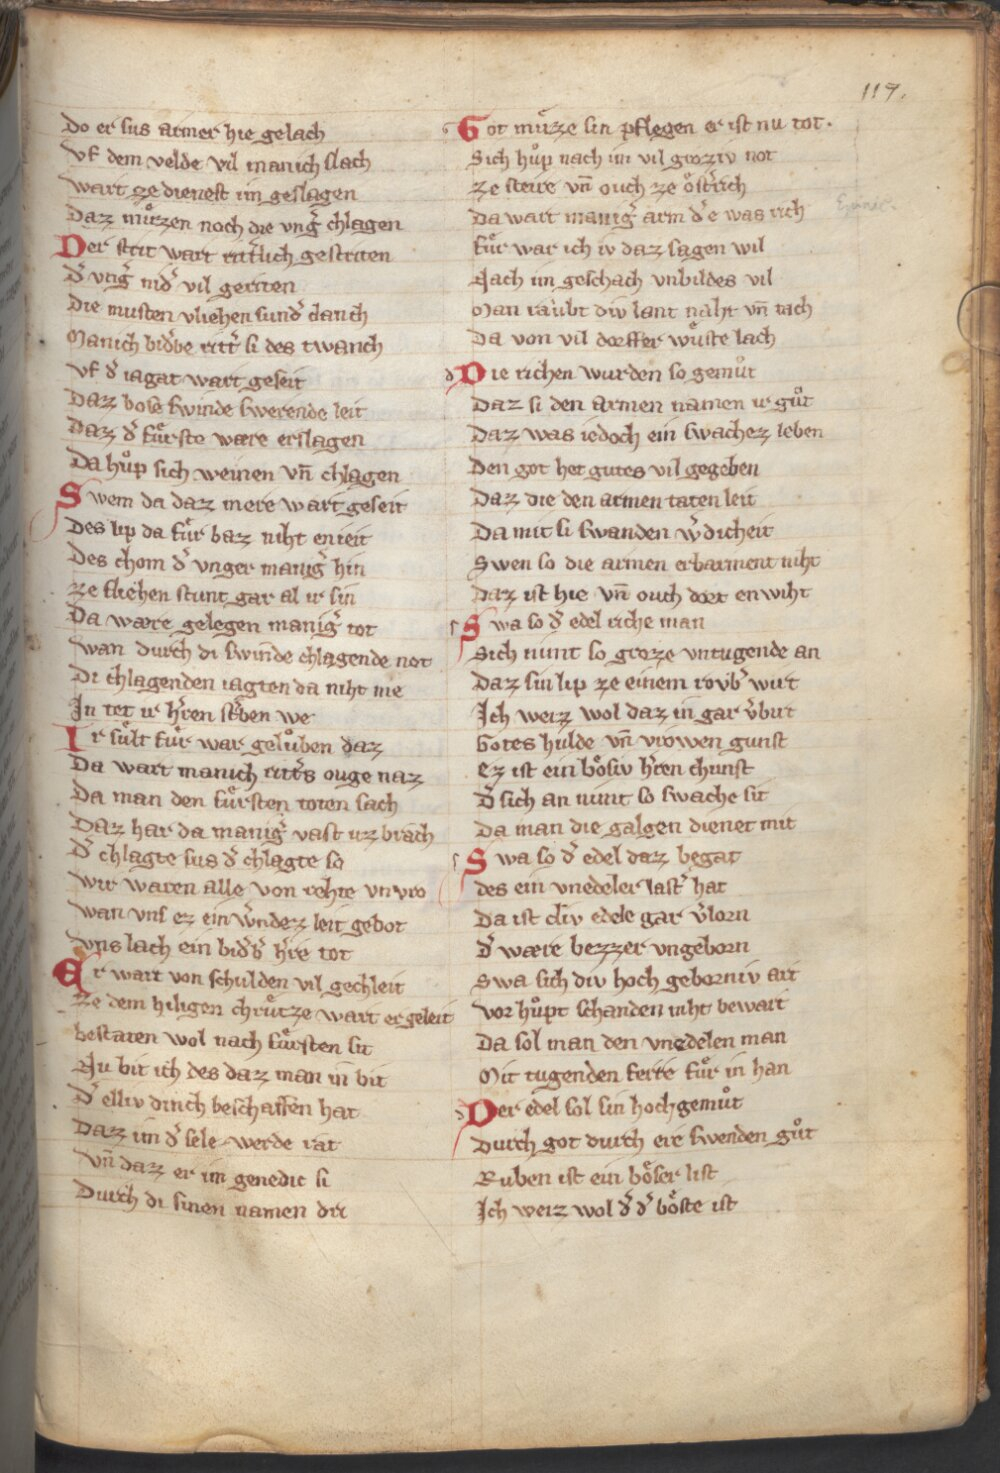 119.
Do er sus armer hie gelach
Vf dem velde vil manich slach
wart ze dienest im geslagen
Daz muͤzzen noch die vng͛ chlagen
Der strit wart rit͛lich gestriten
D͛ vng͛ nid͛ vil geriten
Die musten vliehen sund͛ danch
Manich bid͛be ritt͛ si des twanch
Vf d͛ iagat wart geseit
Daz bose swinde swerende leit
Daz d͛ fuͤrste wære erslagen
Da huͦp sich weinen vn̄ chlagen
Swem da daz mere wart geseit
Des lip da fuͤr baz niht enreit
Des chom d͛ vnger manig͛ hin
ze fliehen stunt gar al ir sin
Da wære gelegen manig͛ tot
wan durch di swinde chlagende not
Di chlagenden iagten da niht me
In tet ir h͛ren st͛ben we
Ir suͤlt fuͤr war geluͦben daz
Da wart manich ritt͛s ouge naz
Da man den fuͤrsten toten sach
Daz har da manig͛ vast uz brach
D͛ chlagte sus d͛ chlagte so
wir waren alle von rehte vnvro
wan vns ez ein w͛ndez leit gebot
vns lach ein bid͛b͛ h͛re tot
Er wart von schulden vil gechleit
ze dem hiligen chruͤtze wart er geleit
bestaten wol nach fuͤrsten sit
Nu bit ich des daz man in bit
D͛ elliv dinch beschaffen hat
Daz im d͛ sele werde rat
vn̄ daz er im genedic si
Durch di sinen namen dri
Got muͤze sin pflegen er ist nu tot.
Sich huͦp nach im vil groziv not
ze steire vn̄ ouch ze oͤst͛rich
Da wart manig͛ arm d͛ e was rich
fuͤr war ich iv daz sagen wil
Nach im geschach vnbildes vil
Man raubt div lant naht vn̄ tach
Da von vil dorffer wuͤste lach
Die richen wurden so gemuͦt
Daz si den armen namen ir guͦt
Daz was iedoch ein swachez leben
Den got het gutes vil gegeben
Daz die den armen taten leit
Da mit si swanden w͛dicheit
Swen so die armen erbarment niht
Daz ist hie vn̄ ouch dort enwiht
Swa so d͛ edel riche man
Sich nimt so groze vntugende an
Daz sin lip ze einem rovb͛ wirt
Ich weiz wol daz in gar v͛birt
Gotes hulde vn̄ vrowen gunst
Ez ist ein boͤsiv h͛ren chunst
D͛ sich an nimt so swache sit
Da man die galgen dienet mit
Swa so d͛ edel daz begat
des ein vnedeler last͛ hat
Da ist div edele gar v͛lorn
D͛ wære bezzer vngeborn
Swa sich div hoch geborniv art
vor huͦpt schanden niht bewart
Da sol man den vnedelen man
Mit tugenden ferre fuͤr in han
Der edel sol sin hochgemuͦt
Durch got durch ere swenden guͦt
Ruben ist ein boͤser list
Ich weiz wol d͛ d͛ boͤste ist